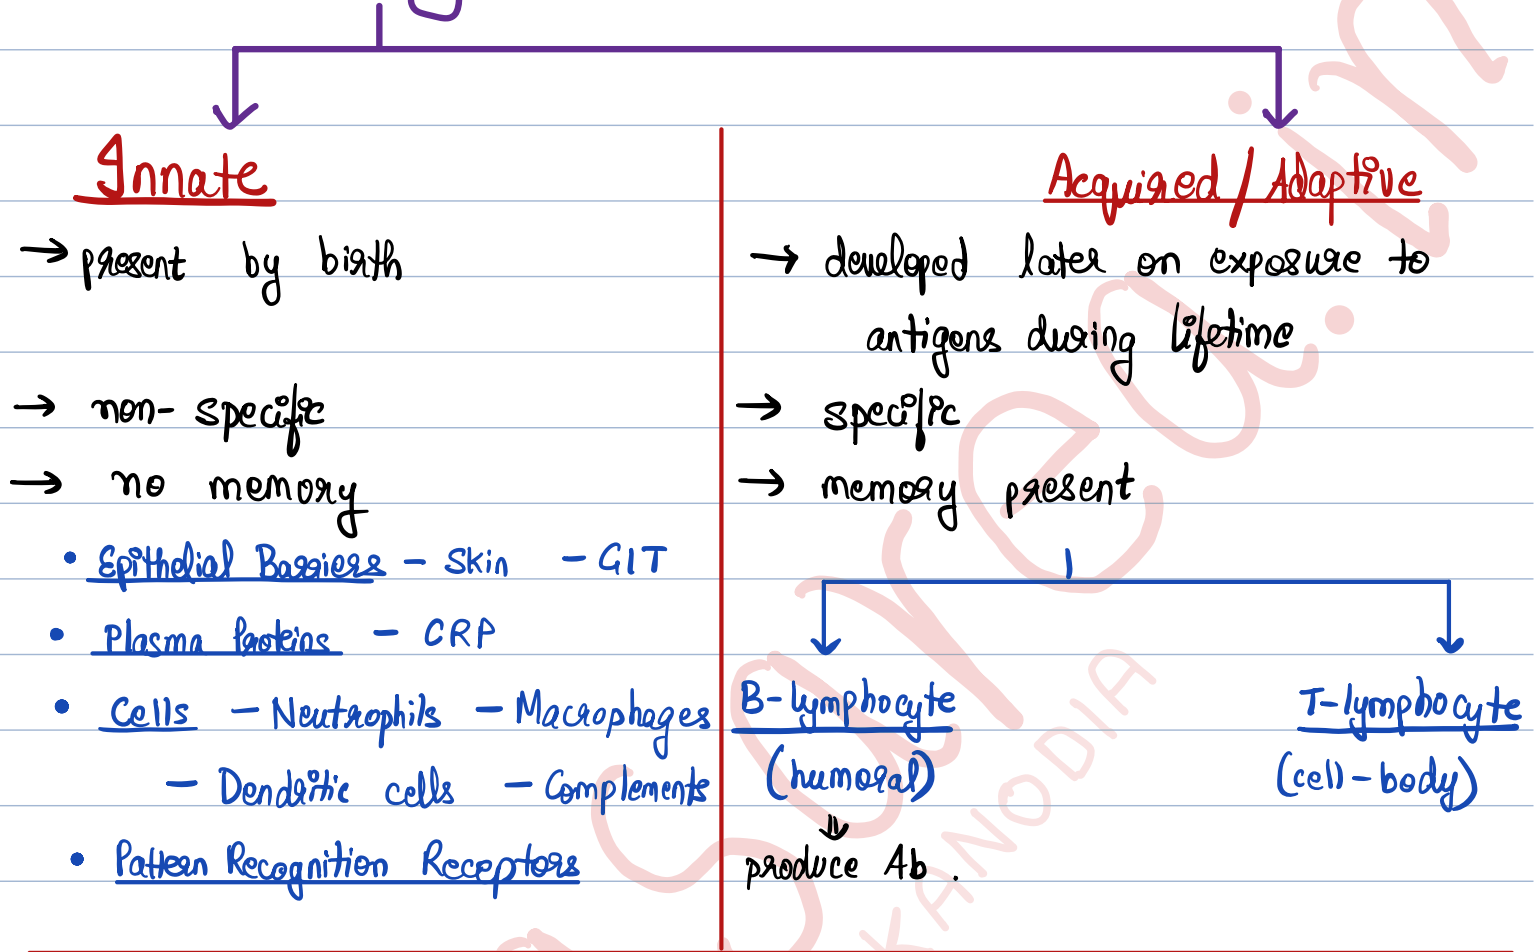 Innate
→ present by birth
→ non-specific
→ no memory
• Epithelial Barriers - Skin - GIT
• Plasma Proteins - CRP
• Cells - Neutrophils - Macrophages
- Dendritic cells - Complements
• Pattern Recognition Receptors
Acquired / Adaptive
→ developed later on exposure to
antigens during lifetime
→ specific
→ memory present
B-lymphocyte
(humoral)
produce Ab.
T-lymphocyte
(cell-body)
KANODIA